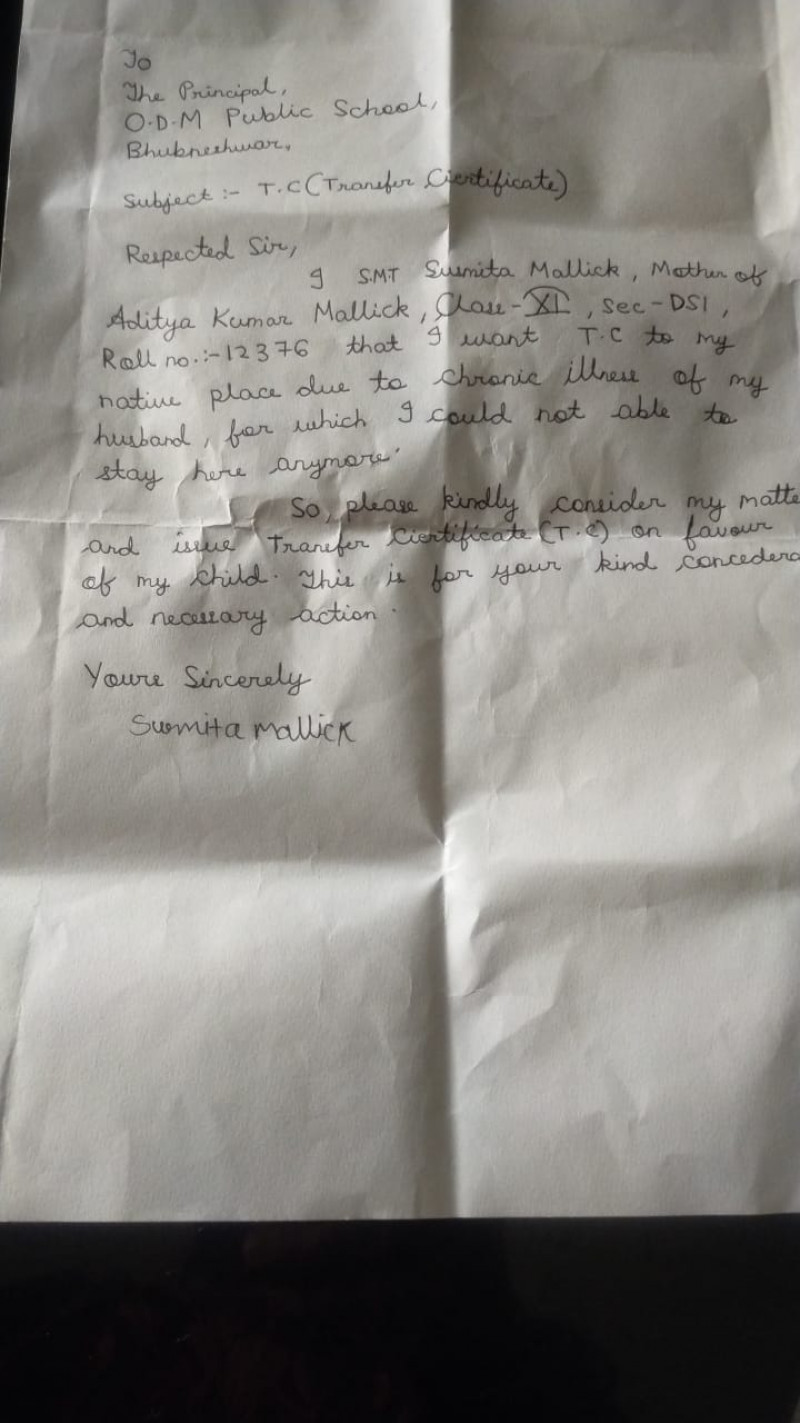 To
The Principal,
O.D.M Public School,
Bhubneshwar,
Subject :- T.C (Transfer Cirtificate)
Respected Sir,
I SMT Susmita Mallick, Mother of
Aditya Kumar Mallick, Class-XI, Sec-DS1,
Roll no.:-12376 that I want T.C to my
native place due to chronic illness of my
husband, for which I could not able to
stay here anymore.
So, please kindly consider my matte
and issue Transfer Cirtificate (T.C) on favour
of my child. This is for your kind concedera
and necessary action.
Yours Sincerely
Susmita Mallick